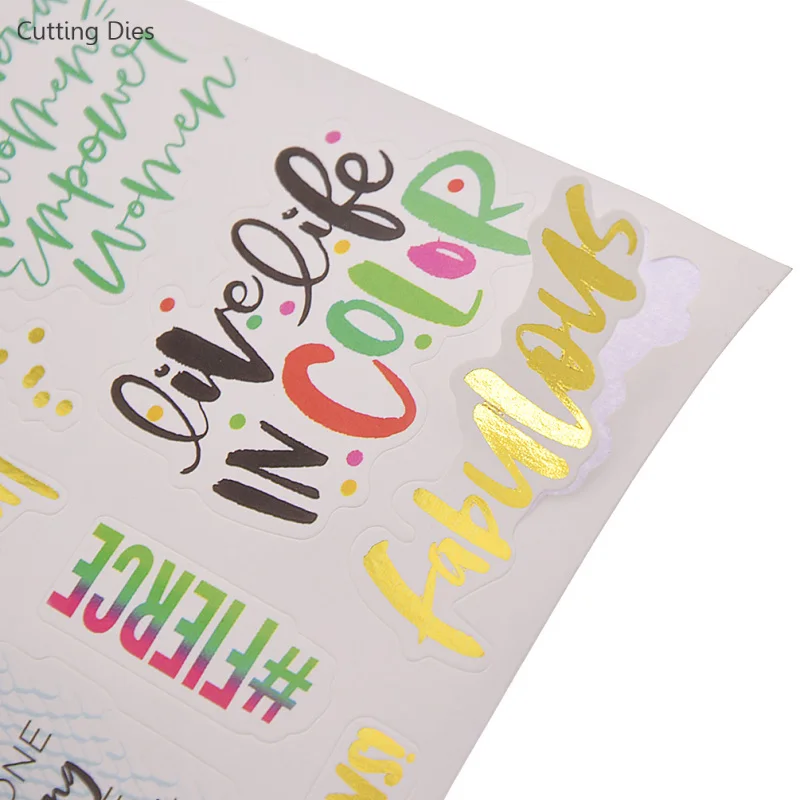 Cutting Dies
Women
Empower
Women
live life
IN COLOR
fabulous
#FIERCE
ONE